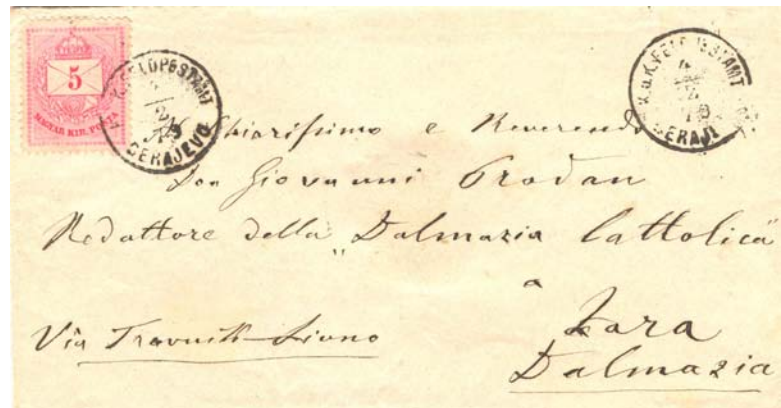 5
MAGYAR KIR. P
K.FELDPOSTAMT
SERAJEVO
K.u.K.FELDPOSTAMT
SERAJE
Chiarissimo e Reverendo
Don Giovanni Prodan
Redattore della "Dalmazia Cattolica"
a
Zara
Via Travnik-Livno
Dalmazia